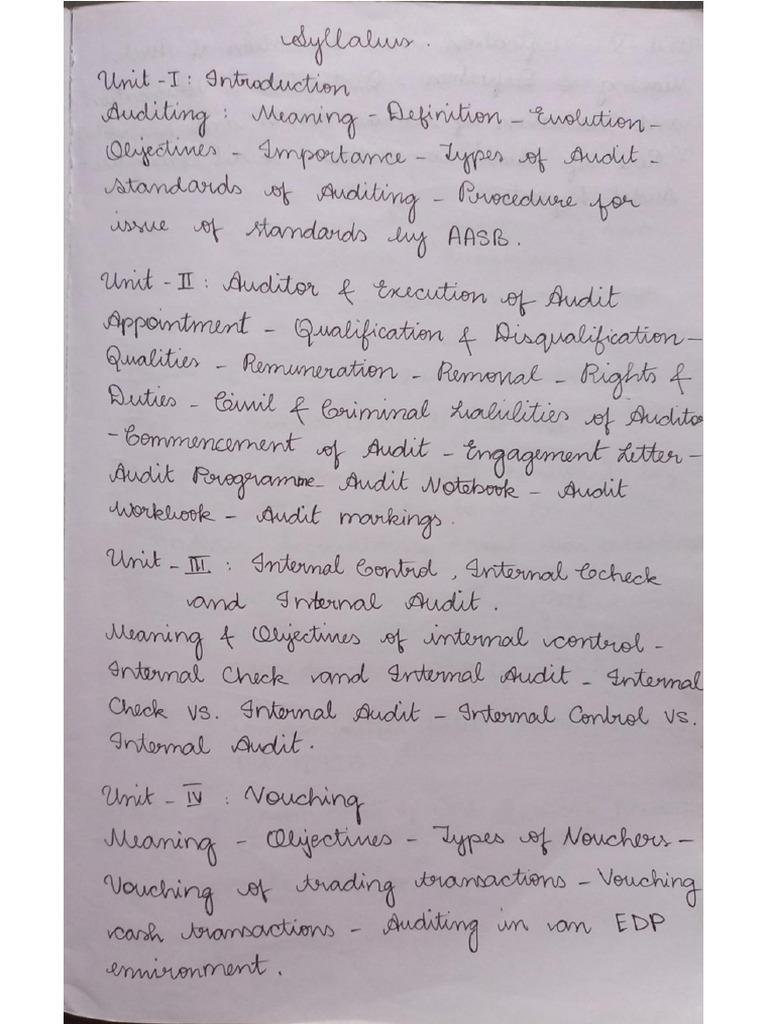 Syllabus.
Unit - I : Introduction
Auditing : Meaning - Definition - Evolution -
Objectives - Importance - Types of Audit -
standards of Auditing - Procedure for
issue of standards by AASB.
Unit - II : Auditor & Execution of Audit
Appointment - Qualification & Disqualification -
Qualities - Remuneration - Removal - Rights &
Duties - Civil & Criminal Liabilities of Auditor
- Commencement of Audit - Engagement Letter -
Audit Programme - Audit Notebook - Audit
Workbook - Audit markings.
Unit - III : Internal Control, Internal Ccheck
and Internal Audit.
Meaning & Objectives of internal control -
Internal Check and Internal Audit - Internal
Check vs. Internal Audit - Internal Control vs.
Internal Audit.
Unit - IV : Vouching
Meaning - Objectives - Types of Vouchers -
Vouching of trading transactions - Vouching
cash transactions - Auditing in an EDP
environment.